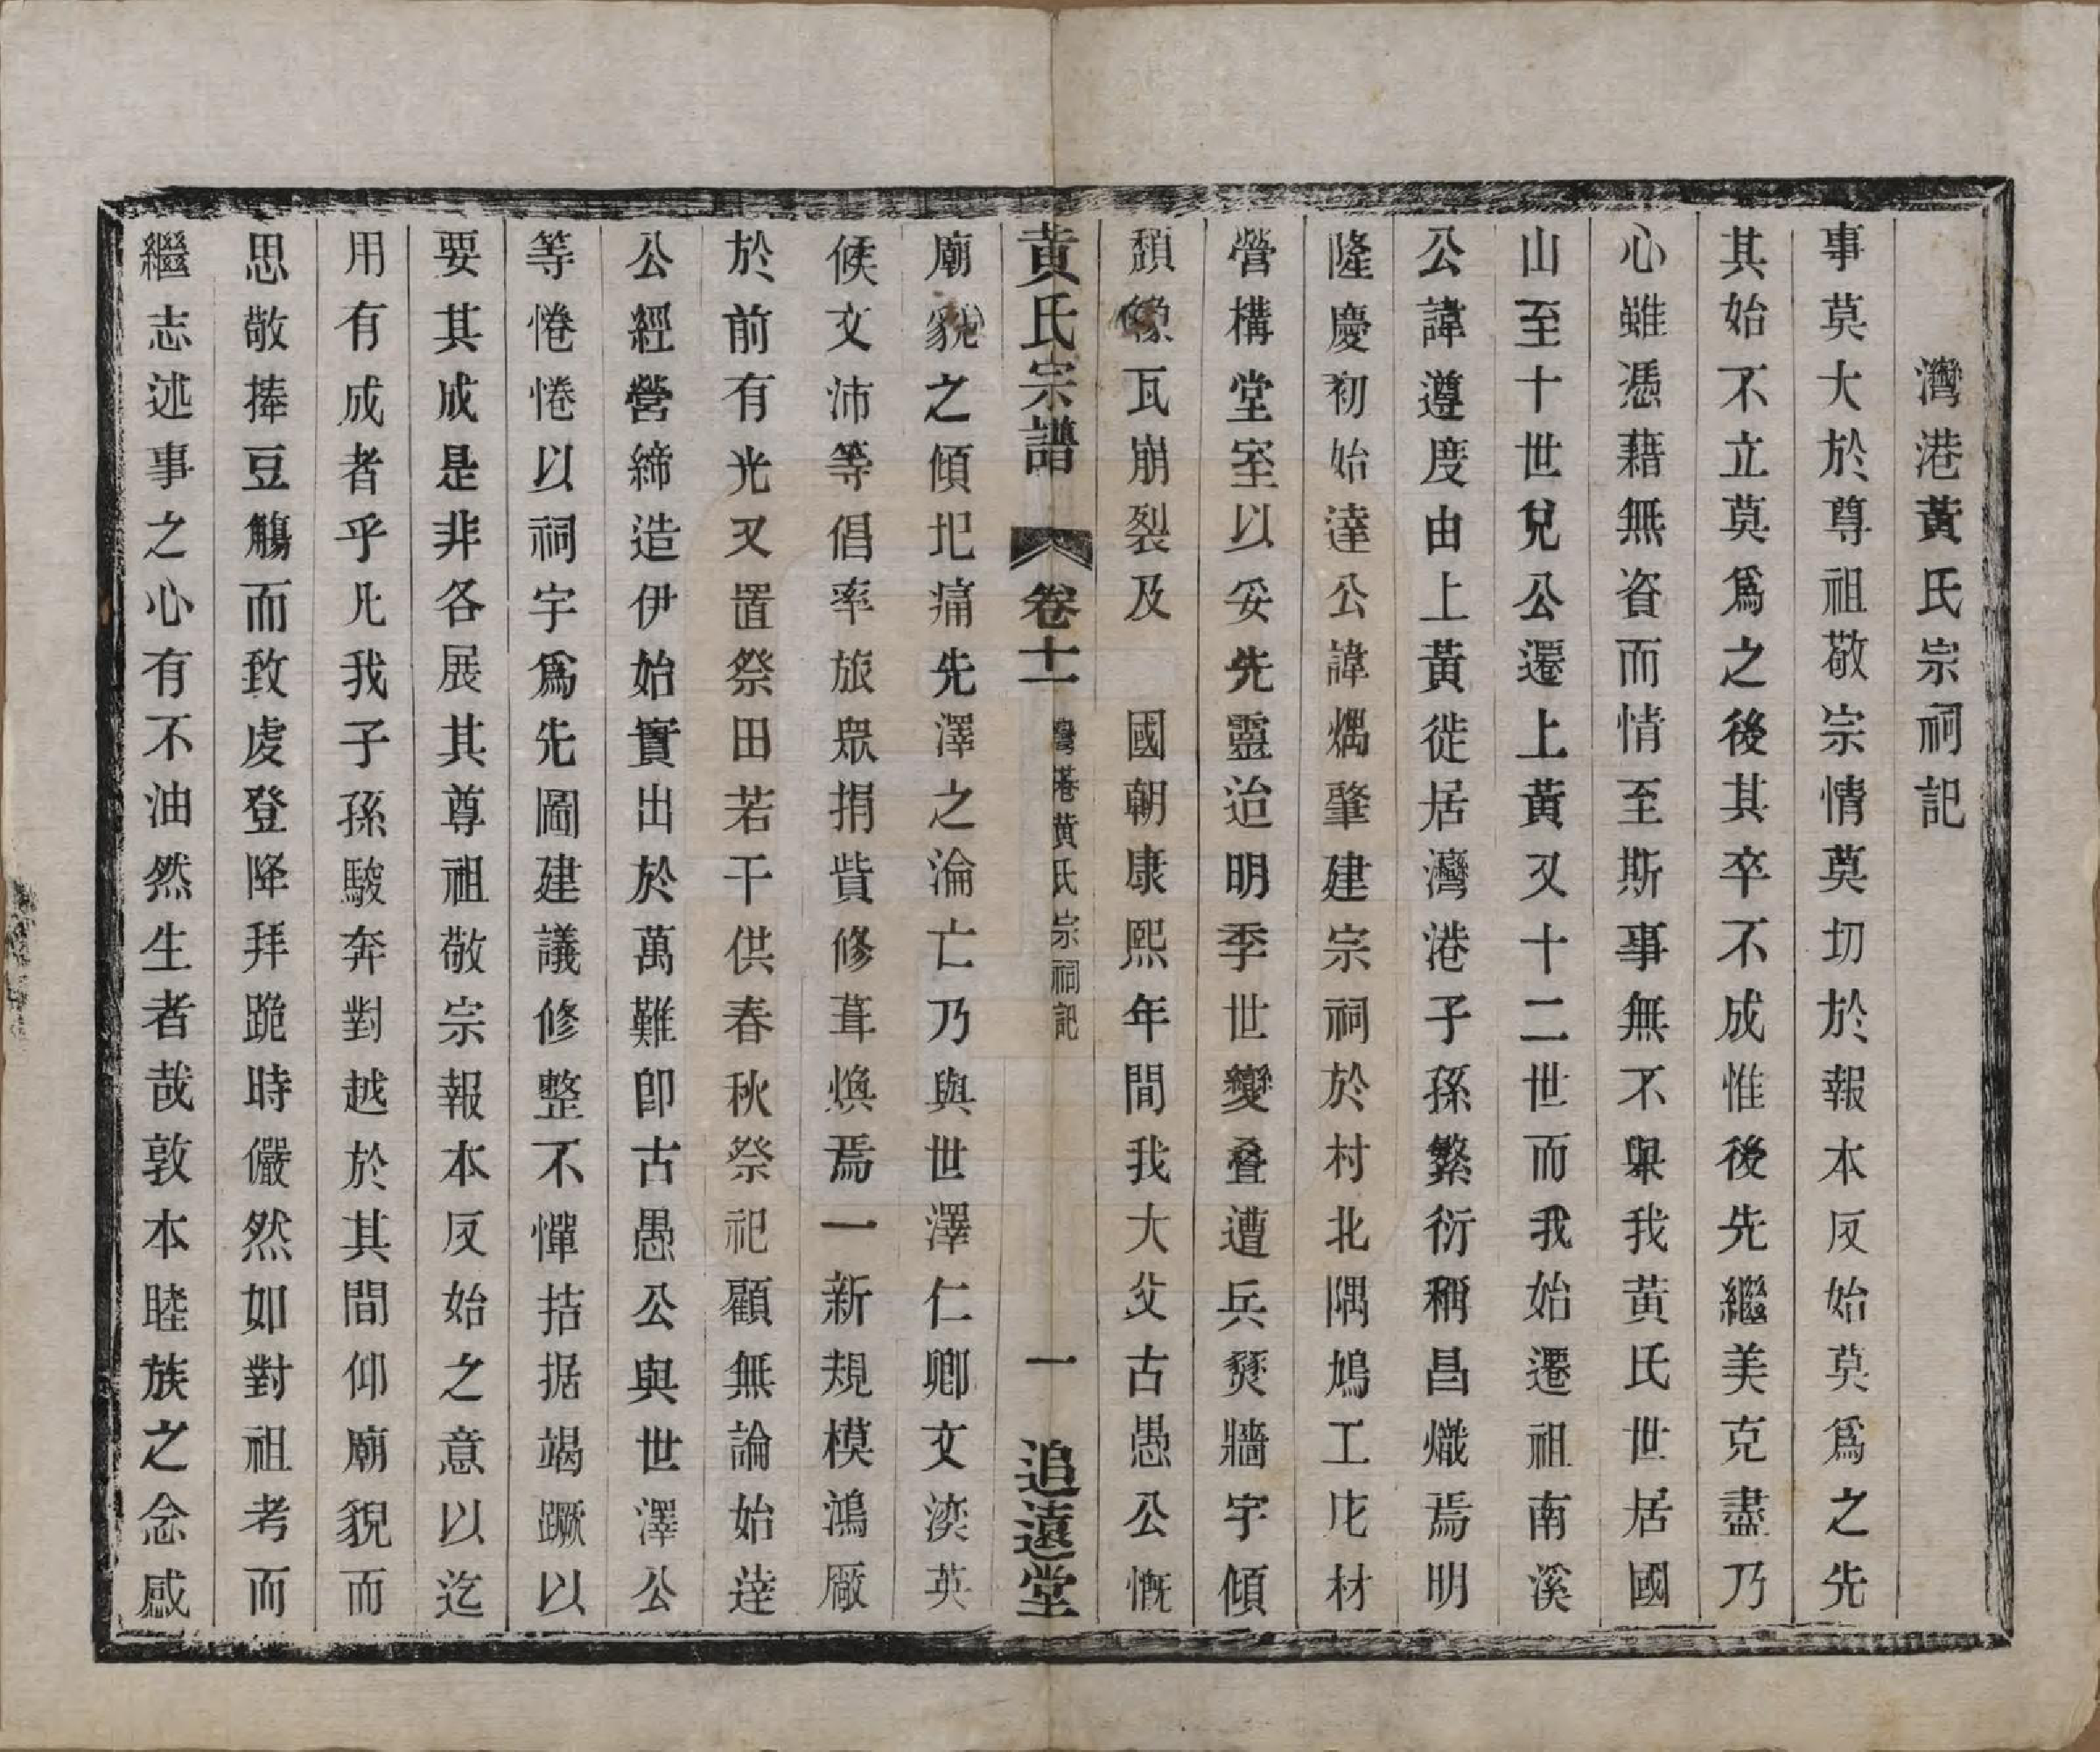 灣港黃氏宗祠記
事莫大於尊祖敬宗情莫切於報本反始莫爲之先
其始不立莫爲之後其卒不成惟後先繼美克盡乃
心雖憑藉無資而情至斯事無不舉我黃氏世居國
山至十世兌公遷上黃又十二世而我始遷祖南溪
公諱遵度由上黃徙居灣港子孫繁衍稱昌熾焉明
隆慶初始達公諱燆肇建宗祠於村北隅鳩工庀材
營構堂室以妥先靈迨明季世變叠遭兵燹牆宇傾
頹椽瓦崩裂及　國朝康熙年間我大父古愚公慨
黃氏宗譜　卷十一　灣港黃氏宗祠記　一　追遠堂
廟貌之傾圯痛先澤之淪亡乃與世澤仁卿文渶英
候文沛等倡率旅眾捐貲修葺煥焉一新規模鴻厰
於前有光又置祭田若干供春秋祭祀顧無論始達
公經營締造伊始實出於萬難卽古愚公與世澤公
等惓惓以祠宇爲先圖建議修整不憚拮据竭蹶以
要其成是非各展其尊祖敬宗報本反始之意以迄
用有成者乎凡我子孫駿奔對越於其間仰廟貌而
思敬捧豆觴而致虔登降拜跪時儼然如對祖考而
繼志述事之心有不油然生者哉敦本睦族之念感